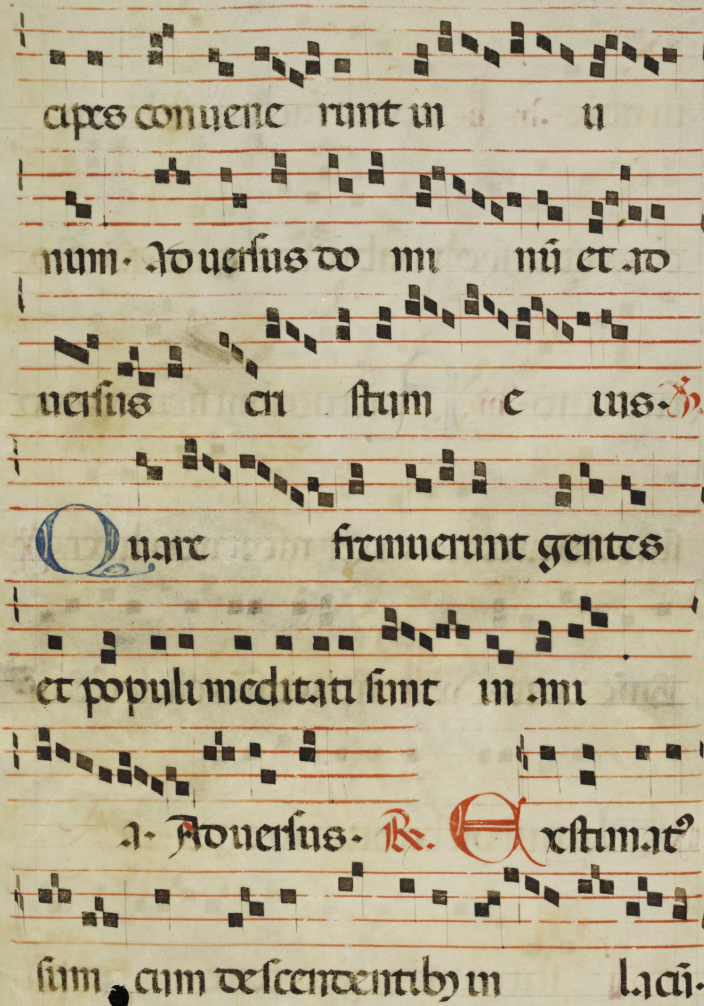 cipes conuene runt in u
num. Aduersus do mi nū et ad
uersus cri stum e ius. ℣.
Quare fremuerunt gentes
et populi meditati sunt in ani
a. Aduersus. ℟. Exstimatꝰ
sum cum descendentibꝫ in lacū.